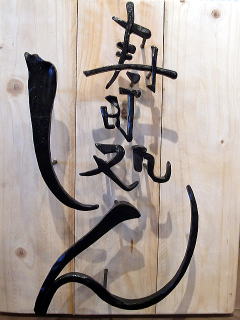 寿司処
しん